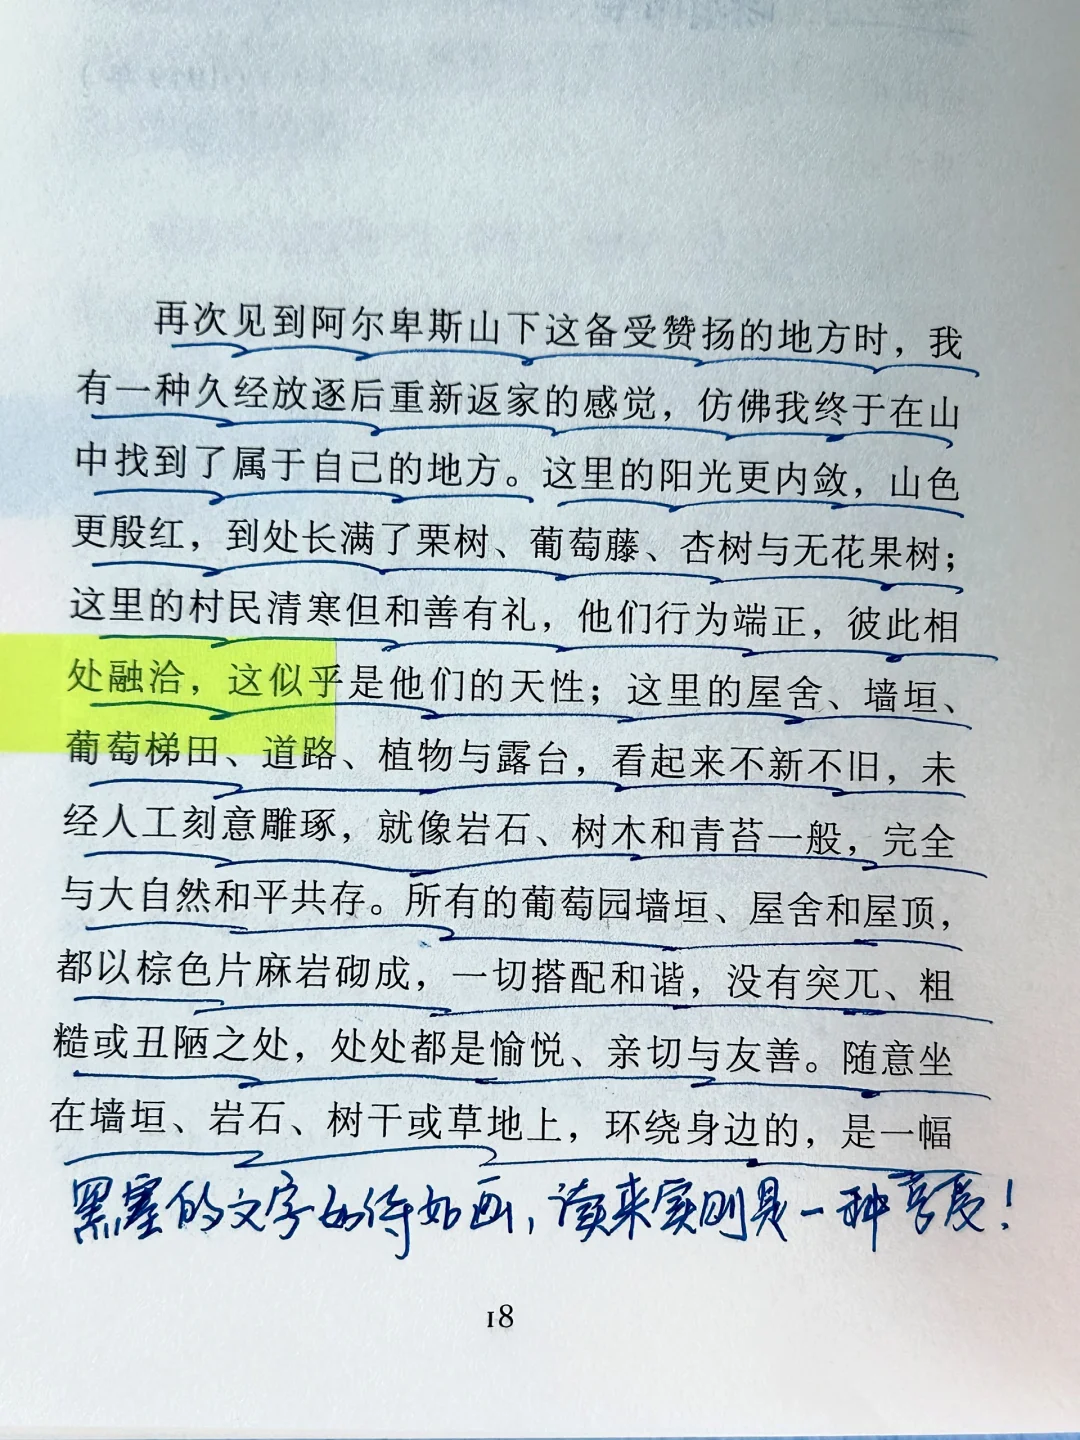 再次见到阿尔卑斯山下这备受赞扬的地方时，我
有一种久经放逐后重新返家的感觉，仿佛我终于在山
中找到了属于自己的地方。这里的阳光更内敛，山色
更殷红，到处长满了栗树、葡萄藤、杏树与无花果树；
这里的村民清寒但和善有礼，他们行为端正，彼此相
处融洽，这似乎是他们的天性；这里的屋舍、墙垣、
葡萄梯田、道路、植物与露台，看起来不新不旧，未
经人工刻意雕琢，就像岩石、树木和青苔一般，完全
与大自然和平共存。所有的葡萄园墙垣、屋舍和屋顶，
都以棕色片麻岩砌成，一切搭配和谐，没有突兀、粗
糙或丑陋之处，处处都是愉悦、亲切与友善。随意坐
在墙垣、岩石、树干或草地上，环绕身边的，是一幅
黑塞的文字如诗如画，读来实则是一种享受！
18